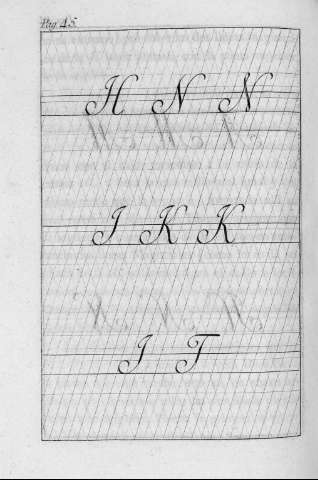 Pag. 45.
H N N
J K K
J T